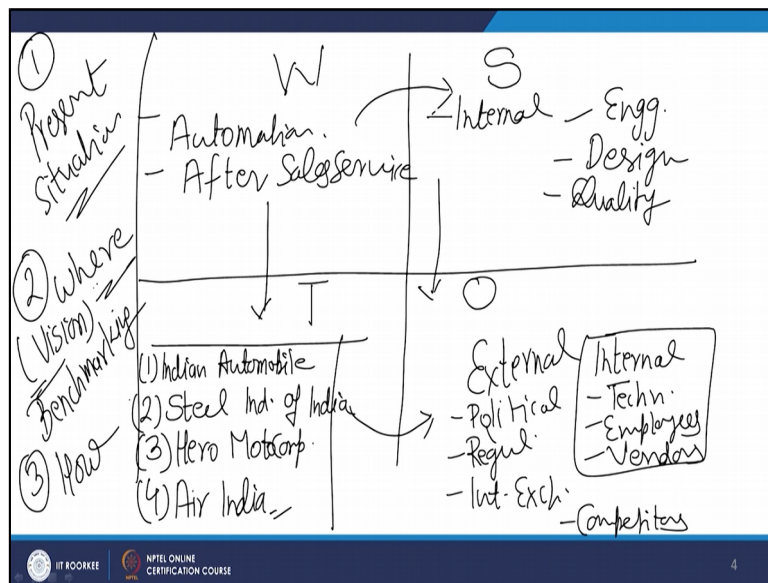 ① Present Situation
② Where (Vision) Benchmarking
③ How
W
- Automation.
- After Sales Service
S
- Internal - Engg.
- Design
- Quality
T
(1) Indian Automobile
(2) Steel Ind. of India
(3) Hero MotoCorp.
(4) Air India
O
External
- Political
- Regul.
- Int. Exch.
Internal
- Techn.
- Employees
- Vendors
- Competitors
IIT ROORKEE
NPTEL ONLINE
CERTIFICATION COURSE
4